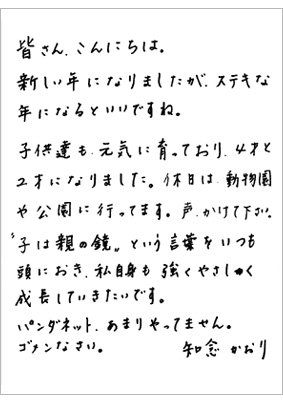 皆さん、こんにちは。
新しい年になりましたが、ステキな
年になるといいですね。
子供達も、元気に育っており、4才と
2才になりました。休日は、動物園
や公園に行ってます。声、かけて下さい。
〝子は親の鏡〟という言葉をいつも
頭におき、私自身も強くやさしく
成長していきたいです。
パンダネット、あまりやってません。
ゴメンなさい。 知念 かおり